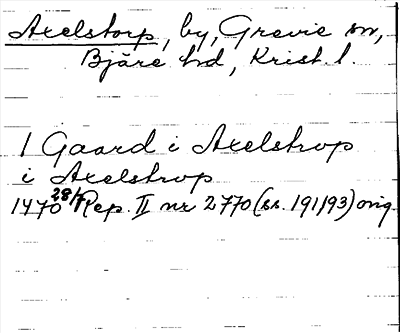 Axelstorp, by, Grevie sn,
Bjäre hd, Krist. l.
1 Gaard i Axelstrop
i Axelstrop
1470 28/7 Rep. II nr 2770 (ss. 191193) orig.